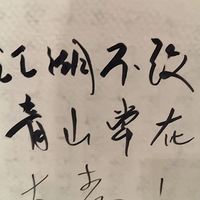 江湖不改
青山常在